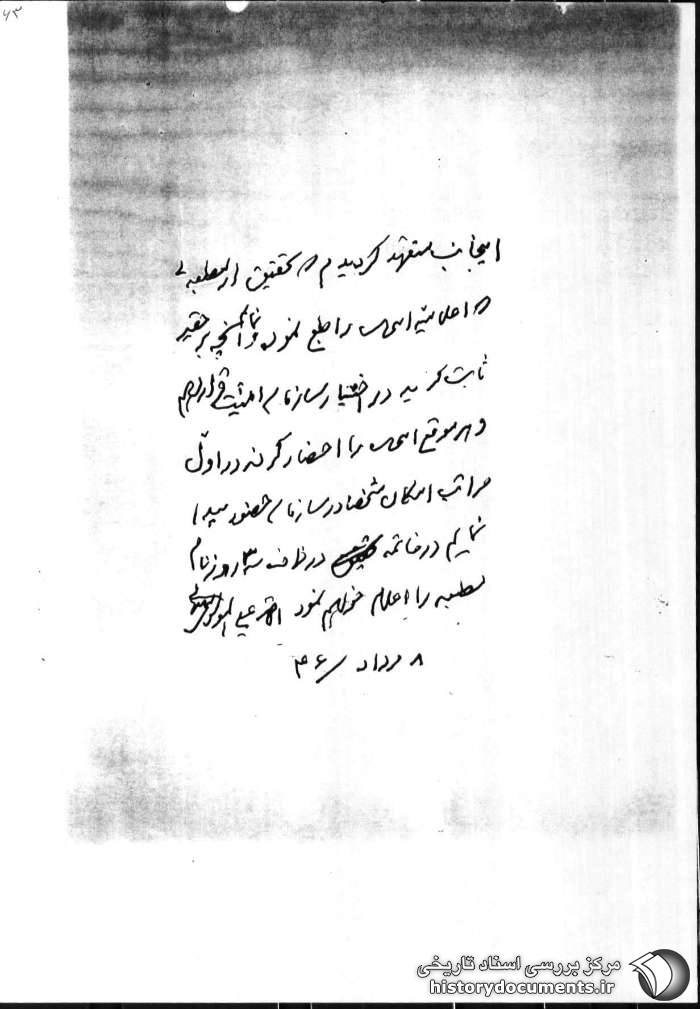 ۶۳
اینجانب متعهد گردیدم که تحقیق از طلبه‌ای
که اعلامیه
را طبع نموده نمایم و آنچه بر حقیر
ثابت گردید در اختیار سازمان امنیت قرار دهم
و هر موقع
را احضار کردند در اول
مراتب امکان شخصا در سازمان حضور پیدا
نمایم در خاتمه در ظرف سه روز نام
طلبه را اعلام خواهم نمود احقر علی الموسوی
۸ مرداد ۴۶
مرکز بررسی اسناد تاریخی
historydocuments.ir